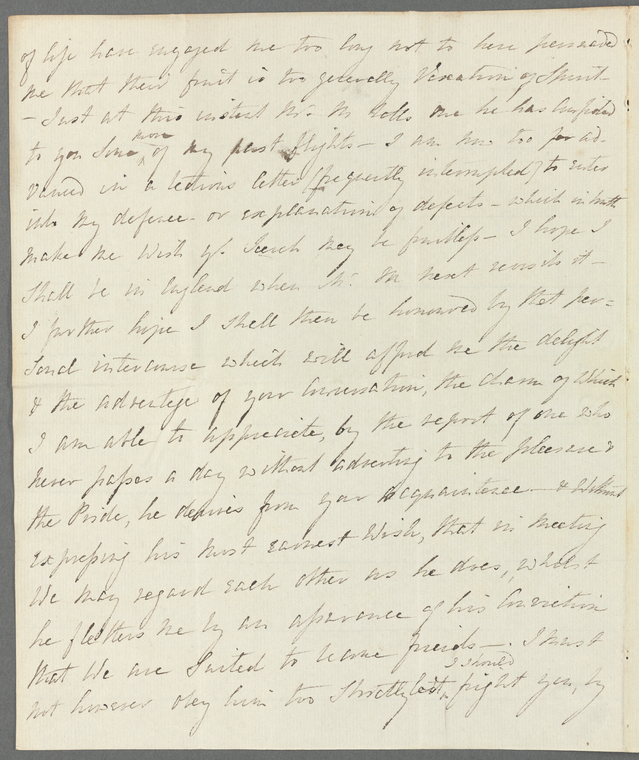 of life have engaged me too long not to have persuaded
me that their fruit is too generally Vexation of Spirit –
– Just at this instant Mr. M tells me he has
to you some more of my past flights – I am now too far ad-
vanced in a tedious letter (frequently interrupted) to enter
into my defence – or explanation of defects – which in truth
make me wish yr. Search may be fruitless – I hope I
Shall be in England when Mr. M next revisits it –
I further hope I shall then be honoured by that per=
sonal intercourse which will afford me the delight
& the advantage of your Conversation, the charm of which
I am able to appreciate, by the report of one who
never passes a day without adverting to the pleasure &
the Pride, he derives from your acquaintance – & without
expressing his most earnest Wish, that in meeting
We may regard each other as he does, whilst
he flatters me by an assurance of his Conviction
that We are Suited to become friends –. I must
not however obey him too Strictly lest I should fright you, by